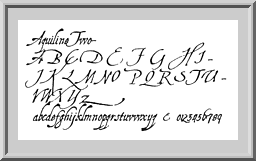 Aquiline Two
A B C D E F G H I-
J K L M N O P Q R S T U-
V W X Y Z
abcdefghijklmnopqrstuvwxyz & 0123456789